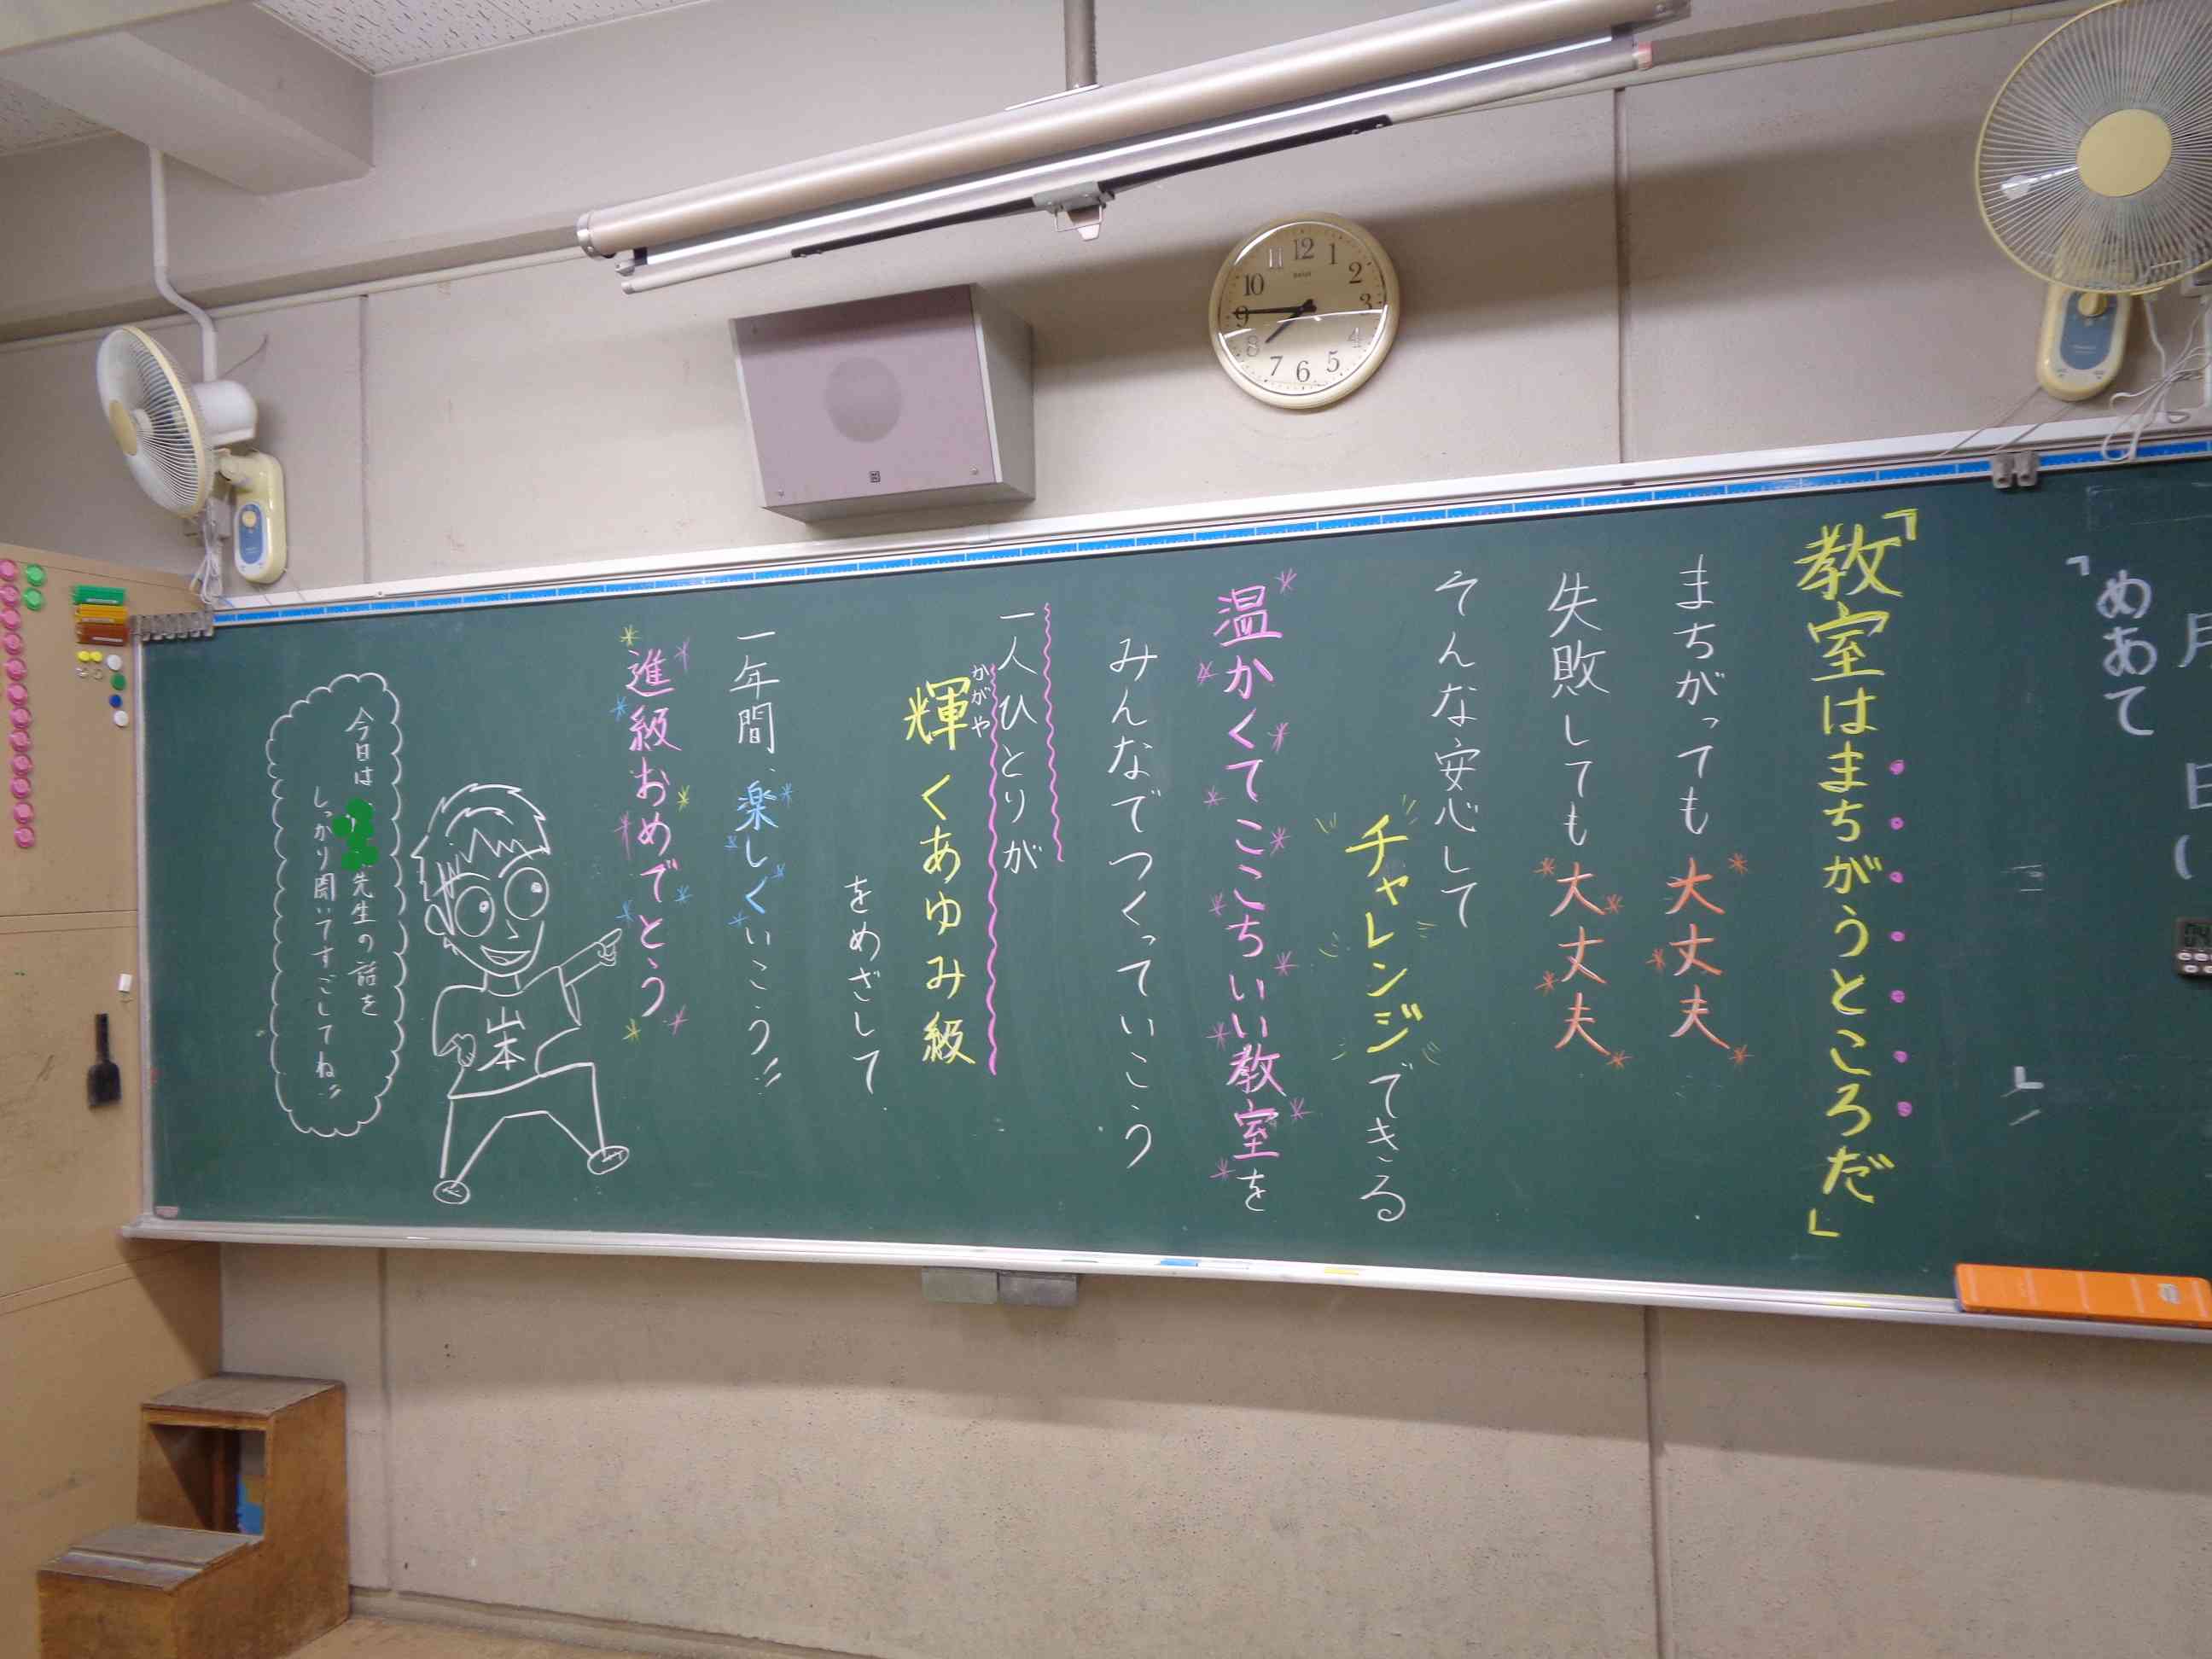 月
日(
「めあて
」
「教室はまちがうところだ」
まちがっても大丈夫
失敗しても大丈夫
そんな安心して
チャレンジできる
温かくてここちいい教室を
みんなでつくっていこう
一人ひとりが
かがや
輝くあゆみ級
をめざして
一年間、楽しくいこう!!
進級おめでとう
山本
今日は
先生の話を
しっかり聞いてすごしてね!!
12
1
2
3
4
5
6
7
8
9
10
11